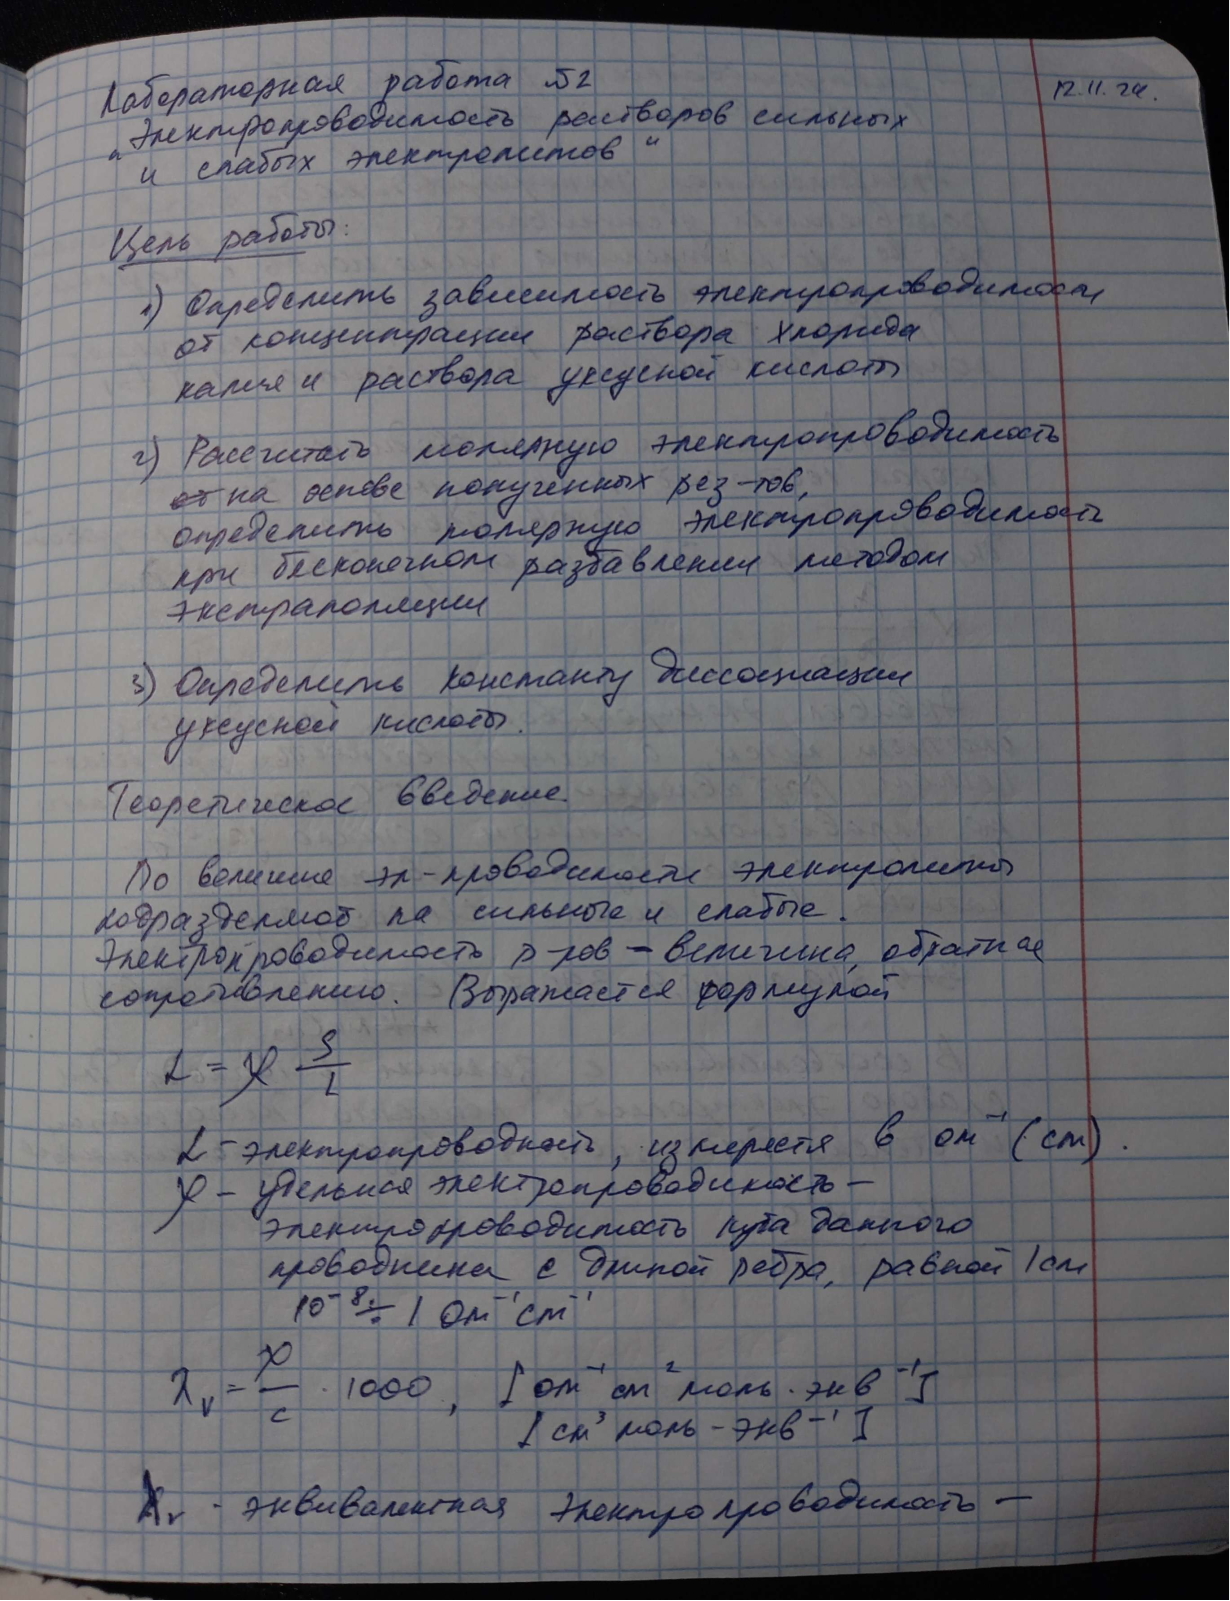 Лабораторная работа №2
12.11.24.
"Электропроводимость растворов сильных
и слабых электролитов"
Цель работы:
1) Определить зависимость электропроводимости
от концентрации раствора хлорида
калия и раствора уксусной кислоты
2) Рассчитать молярную электропроводимость
от на основе полученных рез-тов,
определить молярную электропроводимость
при бесконечном разбавлении методом
экстраполяции
3) Определить константу диссоциации
уксусной кислоты.
Теоретическое введение.
По величине эл-проводимости электролиты
подразделяют на сильные и слабые.
Электропроводимость р-ров – величина, обратная
сопротивлению. Выражается формулой
L = χ S/L
L – электропроводность, измеряется в ом⁻¹ (см).
χ – удельная электропроводимость –
электропроводимость куба данного
проводника с длиной ребра, равной 1 см
10⁻⁸ ÷ 1 ом⁻¹ см⁻¹
λᵥ = χ/c · 1000, [ом⁻¹ см² моль · экв⁻¹]
[см³ моль – экв⁻¹]
λᵥ – эквивалентная электропроводимость –